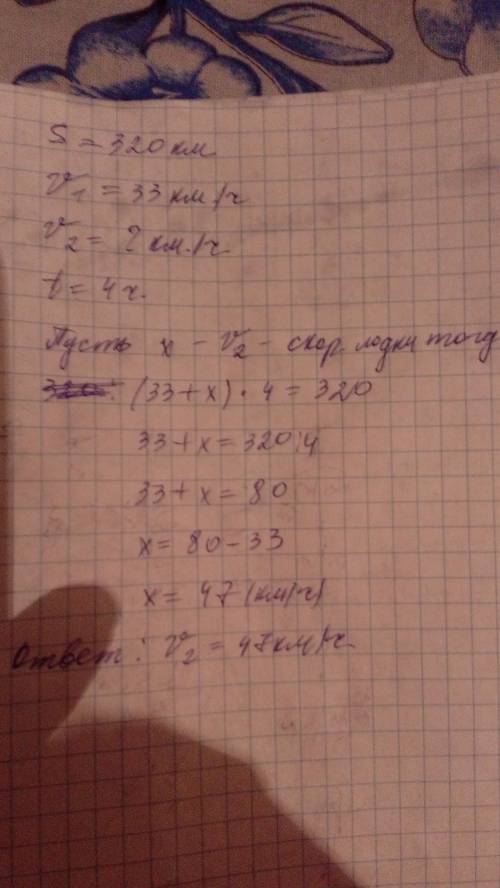 S = 320 км
V₁ = 33 км/ч
V₂ = ? км./ч.
t = 4 ч.
Пусть x - V₂ - скор. лодки тогд
(33 + x) · 4 = 320
33 + x = 320 : 4
33 + x = 80
x = 80 - 33
x = 47 (км/ч)
Ответ: V₂ = 47 км/ч.